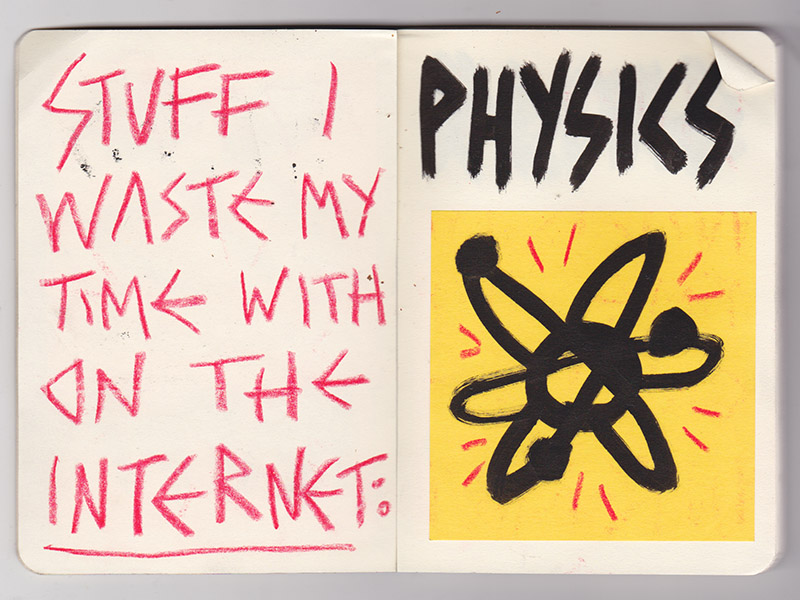 STUFF I
WASTE MY
TIME WITH
ON THE
INTERNET:
PHYSICS